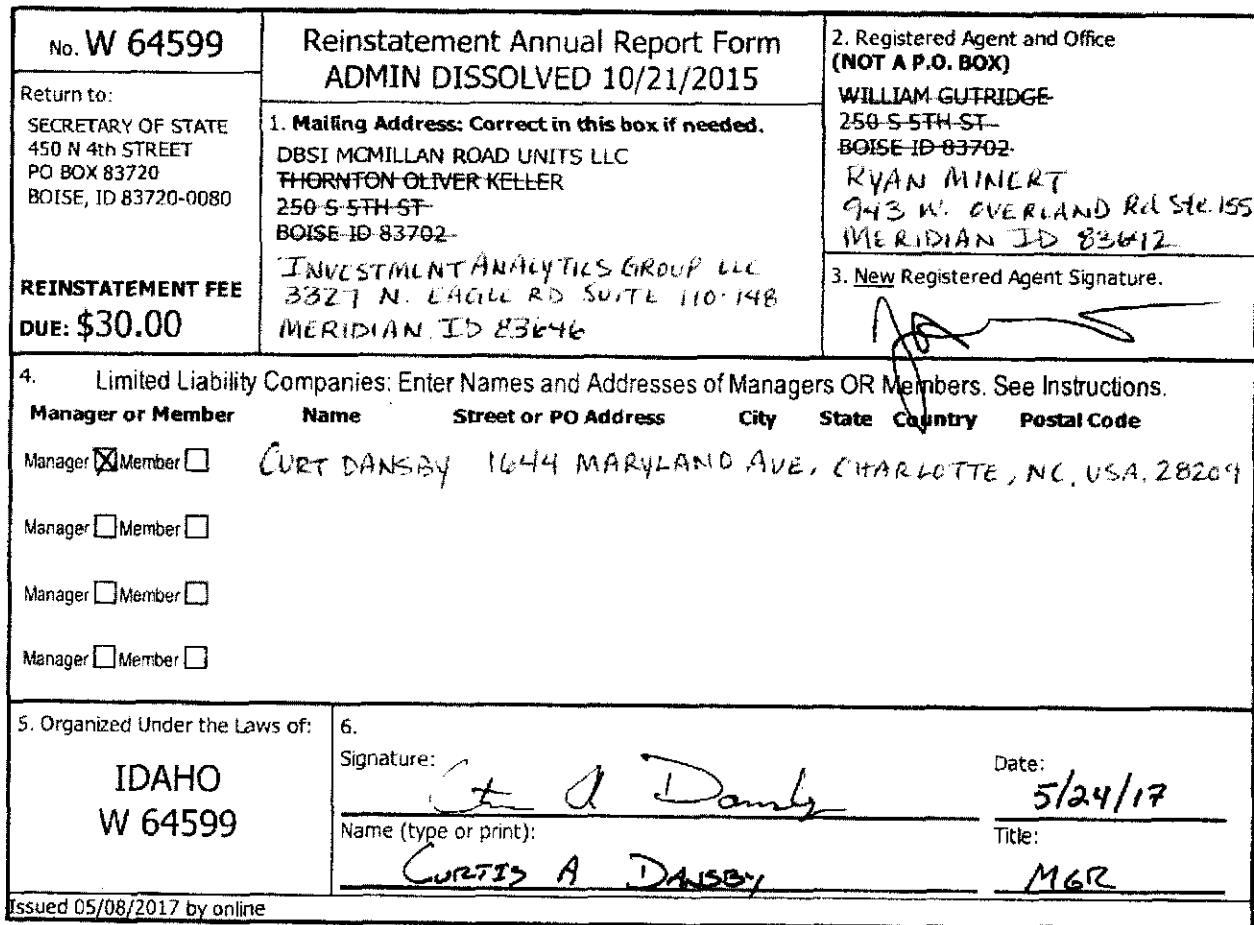 No. W 64599
Return to:
SECRETARY OF STATE
450 N 4th STREET
PO BOX 83720
BOISE, ID 83720-0080
REINSTATEMENT FEE
DUE: $30.00
Reinstatement Annual Report Form
ADMIN DISSOLVED 10/21/2015
1. Mailing Address: Correct in this box if needed.
DBSI MCMILLAN ROAD UNITS LLC
THORNTON OLIVER KELLER
250 S 5TH ST
BOISE ID 83702
INVESTMENT ANALYTICS GROUP LLC
3327 N. EAGLE RD SUITE 110-148
MERIDIAN. ID 83646
2. Registered Agent and Office
(NOT A P.O. BOX)
WILLIAM GUTRIDGE
250 S 5TH ST
BOISE ID 83702
RYAN MINERT
943 W. OVERLAND Rd Ste. 155
MERIDIAN ID 83642
3. New Registered Agent Signature.
4. Limited Liability Companies: Enter Names and Addresses of Managers OR Members. See Instructions.
Manager or Member Name Street or PO Address City State Country Postal Code
Manager ☒ Member ☐ CURT DANSBY 1644 MARYLAND AVE, CHARLOTTE, NC, USA. 28209
Manager ☐ Member ☐
Manager ☐ Member ☐
Manager ☐ Member ☐
5. Organized Under the Laws of:
IDAHO
W 64599
6.
Signature: A Dansby
Date: 5/24/17
Name (type or print): CURTIS A DANSBY
Title: MGR
Issued 05/08/2017 by online